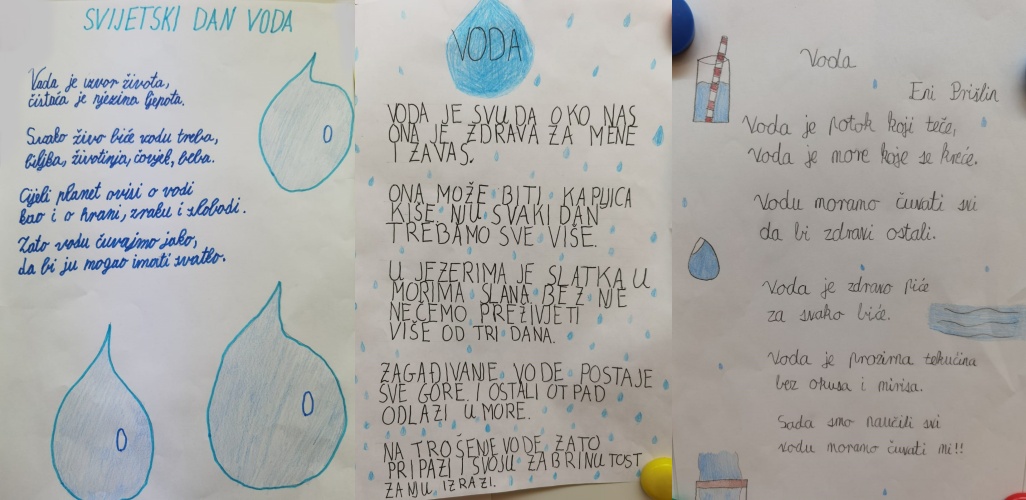 SVIJETSKI DAN VODA
Voda je izvor života,
čistoća je njezina ljepota.
Svako živo biće vodu treba,
biljka, životinja, čovjek, beba.
Cijeli planet ovisi o vodi
kao i o hrani, zraku i slobodi.
Zato vodu čuvajmo jako,
da bi ju mogao imati svatko.
VODA
VODA JE SVUDA OKO NAS
ONA JE ZDRAVA ZA MENE
I ZAVAS.
ONA MOŽE BITI KAPLJICA
KIŠE. NJU SVAKI DAN
TREBAMO SVE VIŠE.
U JEZERIMA JE SLATKA U
MORIMA SLANA. BEZ NJE
NEĆEMO PREŽIVJETI
VIŠE OD TRI DANA.
ZAGAĐIVANJE VODE POSTAJE
SVE GORE. I OSTALI OTPAD
ODLAZI U MORE.
NA TROŠENJE VODE ZATO
PRIPAZI I SVOJU ZABRINUTOST
ZANJU IZRAZI.
Voda
Eni Brišlin
Voda je potok koji teče,
voda je more koje se kreće.
Vodu moramo čuvati svi
da bi zdravi ostali.
Voda je zdravo piće
za svako biće.
Voda je prozirna tekućina
bez okusa i mirisa.
Sada smo naučili svi
vodu moramo čuvati mi!!